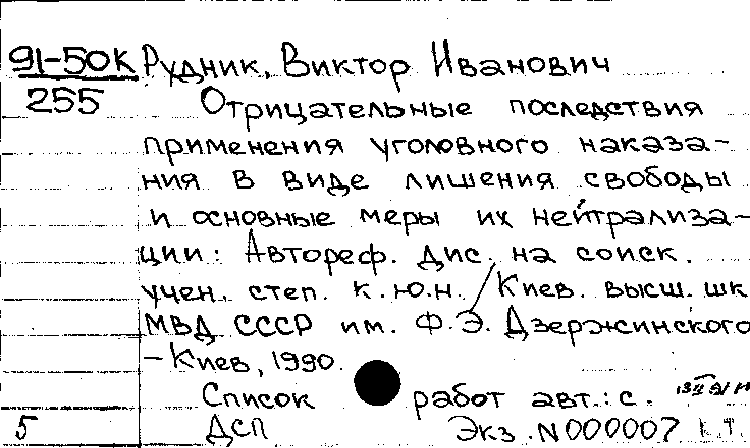 91-50К Рудник, Виктор Иванович
255 Отрицательные последствия
применения уголовного наказа-
ния в виде лишения свободы
и основные меры их нейтрализа-
ции: Автореф. дис. на соиск.
учен. степ. к.ю.н. / Киев. высш. шк
МВД СССР им. Ф.Э. Дзержинского
- Киев, 1990.
Список работ авт.: с.
5 ДСП Экз. N 000007 1 т.